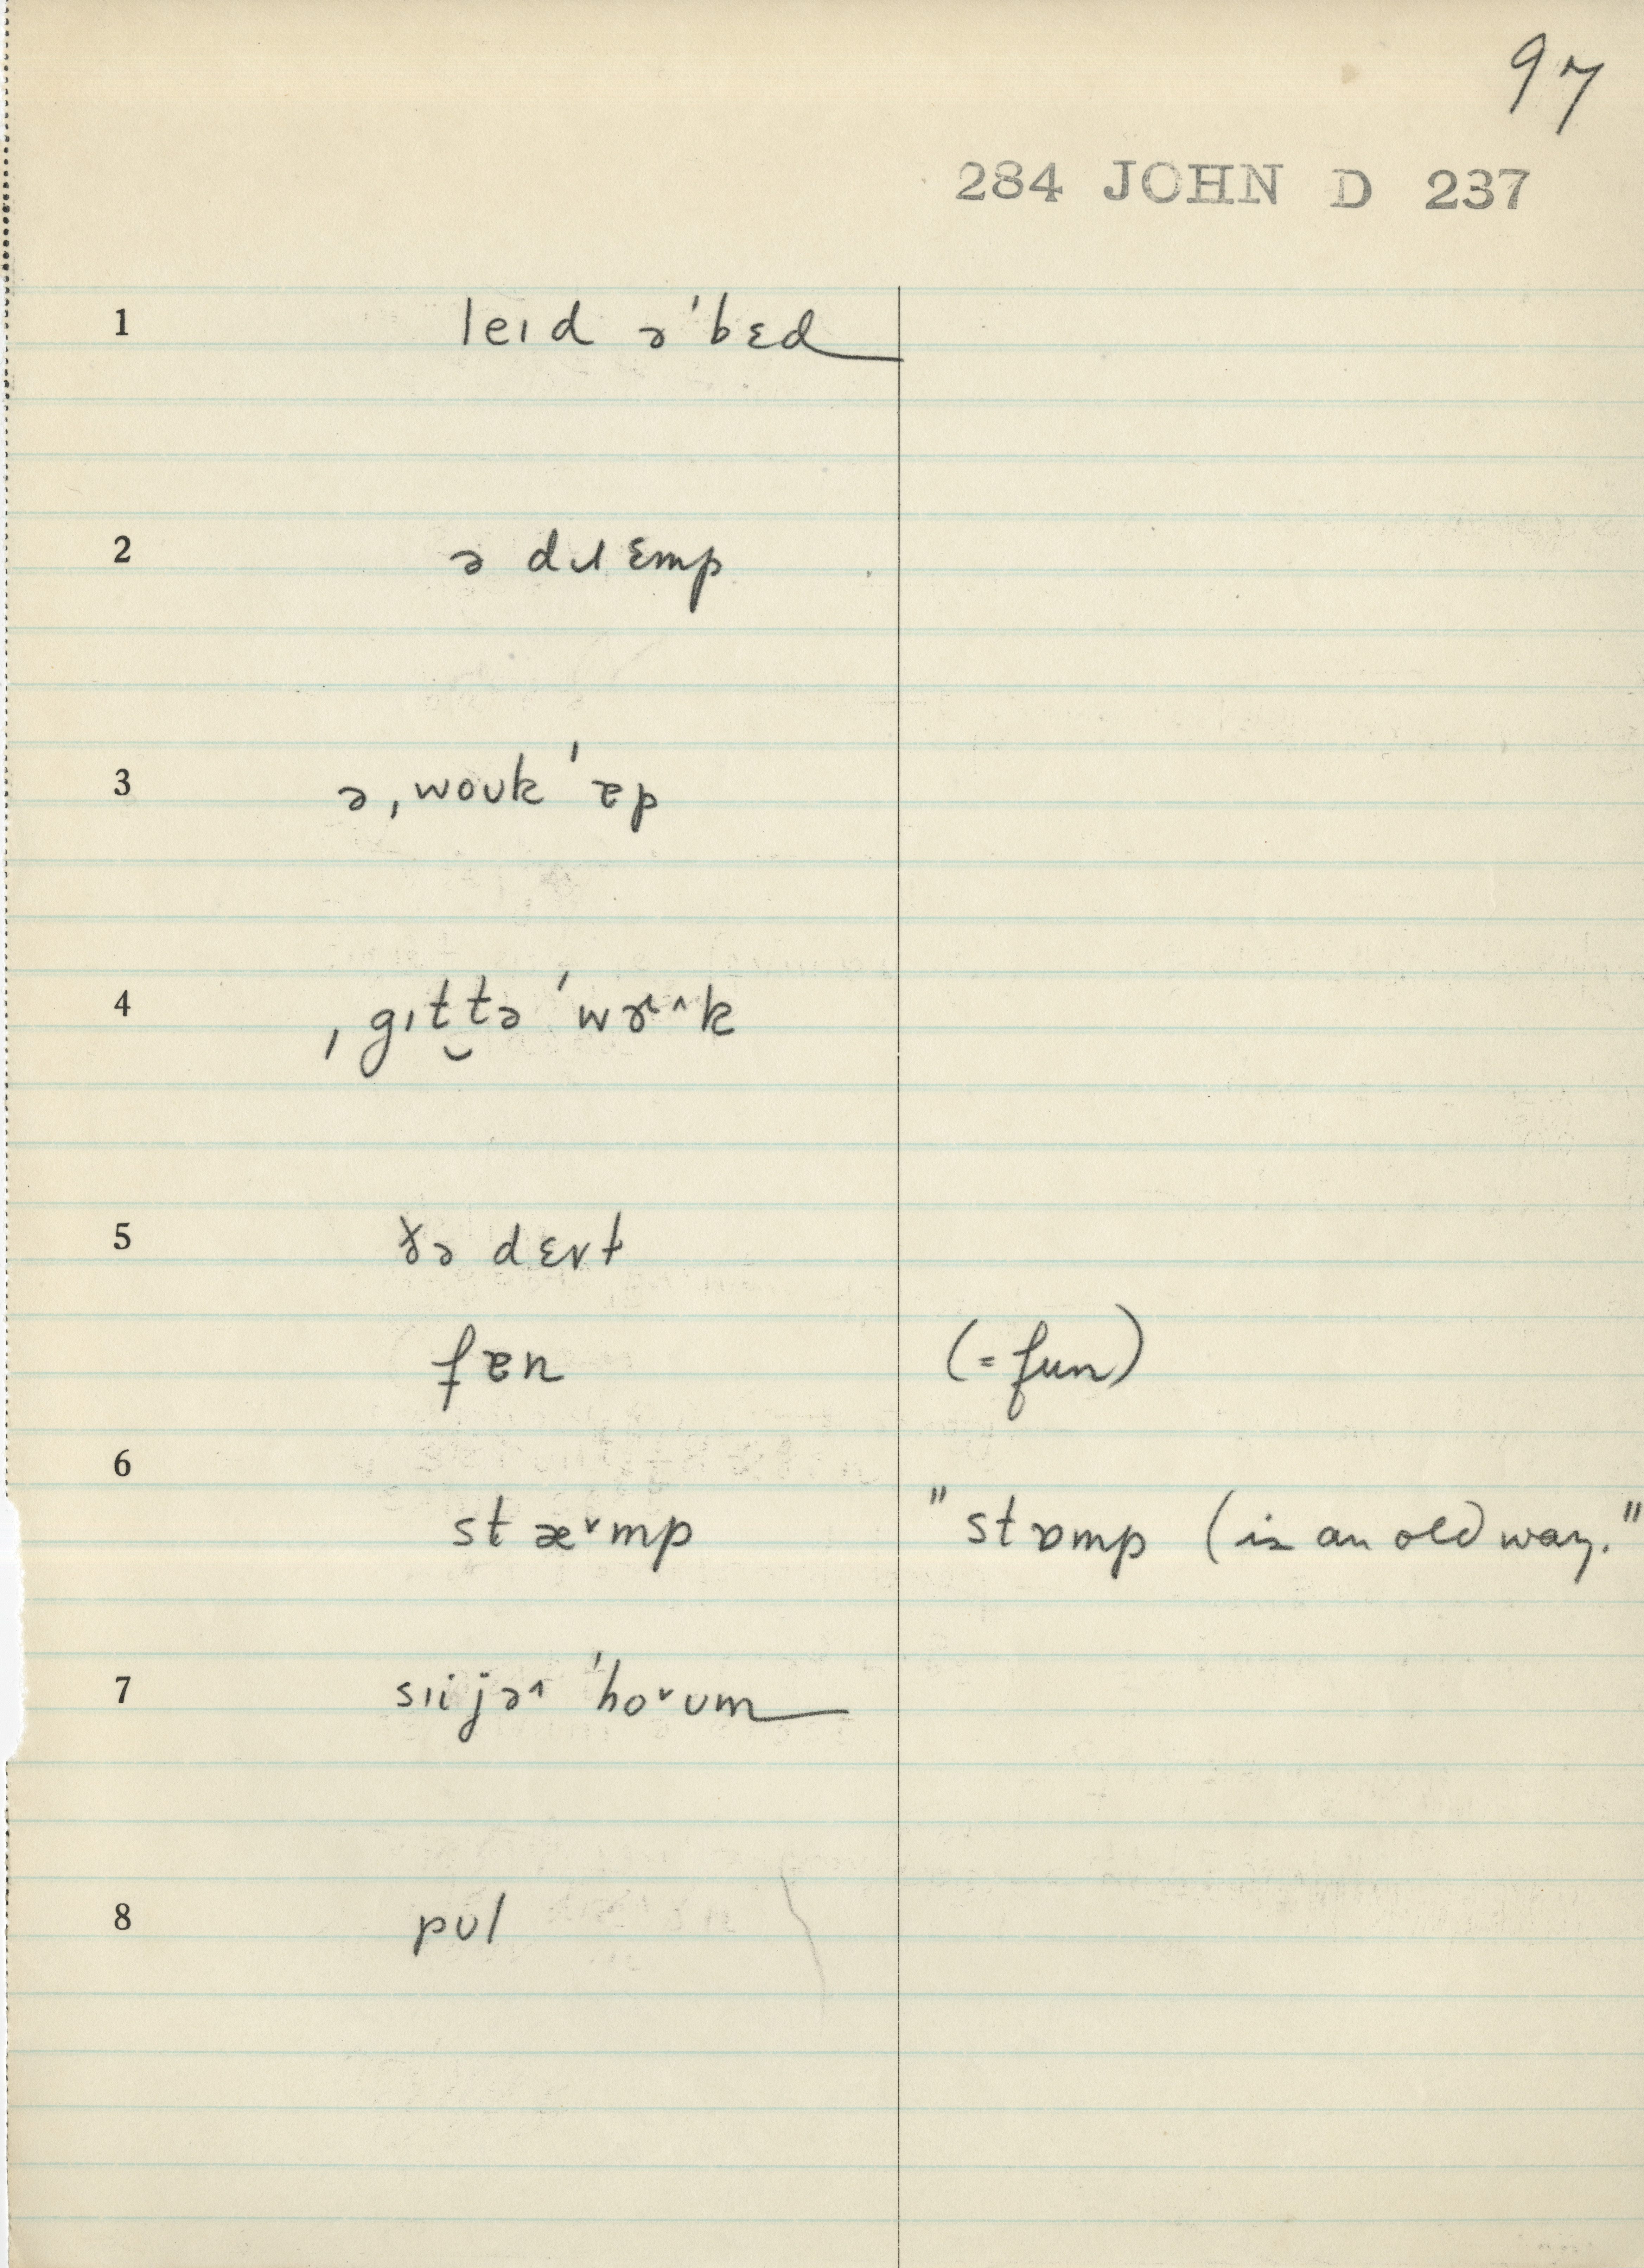 97
284 JOHN D 237
1 leɪd ə ˈbɛd
2 ə dɹɛmp
3 ə ˌwoʊk ˈɐp
4 ˌgɪt̮tə ˈwɚ^k
5 ðə
fɐn (=fun)
6
stæ˅mp "stɒmp (is an old way."
7 sɪi jə^ ˈho˅ʊm
8 pʊl